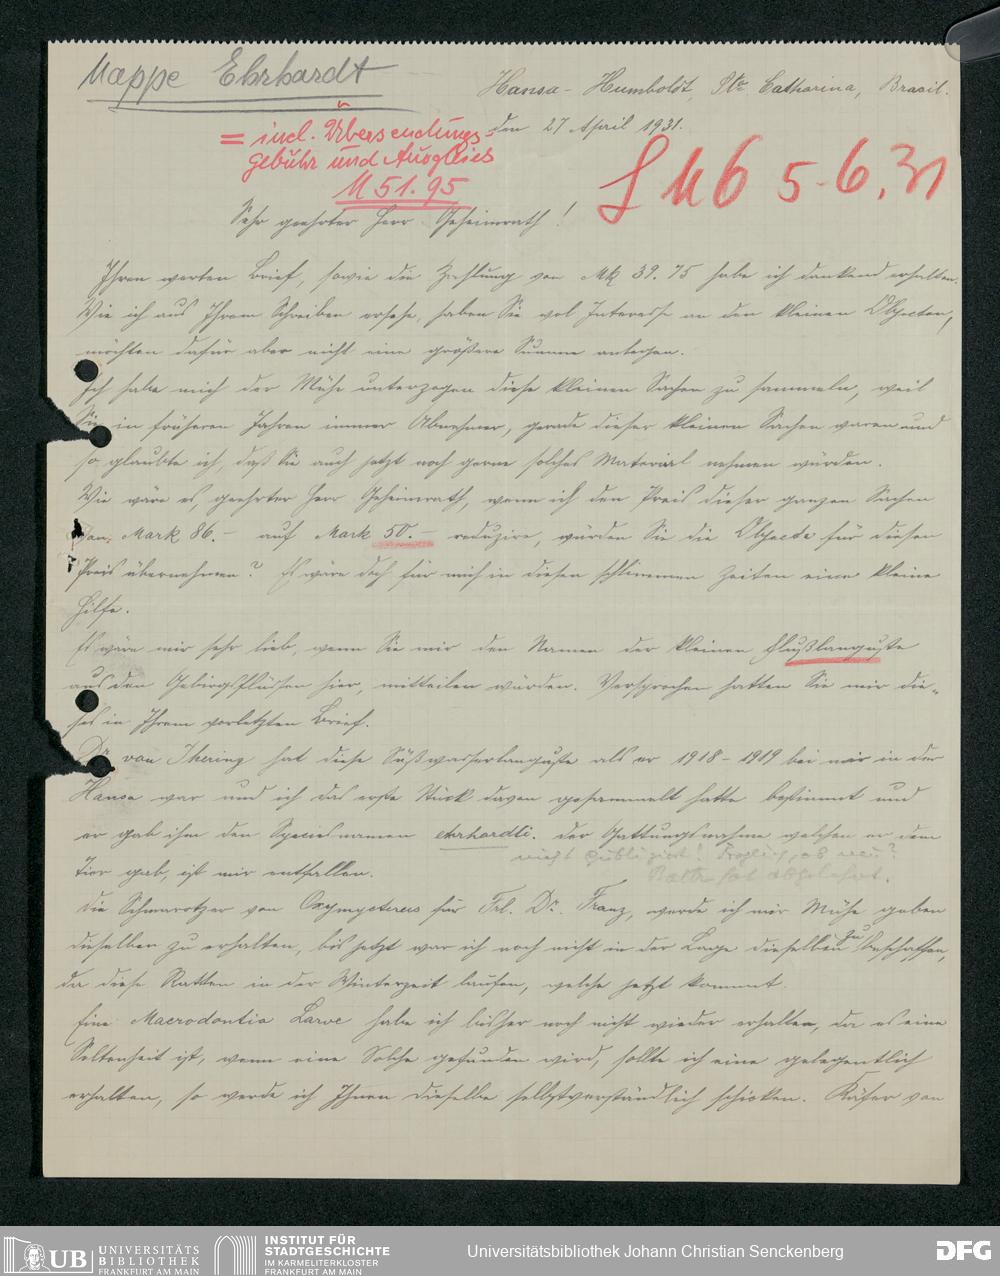 Mappe Ehrhardt
Hansa - Humboldt, Sta Catharina, Brasil.
den 27 April 1931.
= incl. Übersendungs-
gebühr und Ausglies
M 51.95
5-6.31
Sehr geehrter Herr Geheimrath!
Ihren werten Brief, sowie die Zahlung von Mk 39.75 habe ich dankend erhalten.
Wie ich aus Ihrem Schreiben ersehe, haben Sie wol Interesse an den kleinen Objecten,
möchten dafür aber nicht eine größere Summe anlegen.
Ich habe mich der Mühe unterzogen diese kleinen Sachen zu sammeln, weil
Sie in früheren Jahren immer Abnehmer, gerade dieser kleinen Sachen waren und
so glaubte ich, daß Sie auch jetzt noch gerne solches Material nehmen würden.
Wie wäre es geehrter Herr Geheimrath, wenn ich den Preis dieser ganzen Sachen
von Mark 86.- auf Mark 50.- reduzire, würden Sie die Objecte für diesen
Preis übernehmen? Es wäre doch für mich in diesen schlimmen Zeiten eine kleine
Hilfe.
Es wäre mir sehr lieb, wenn Sie mir den Namen der kleinen Flußlanguste
aus den Gebirgsflüssen hier, mitteilen würden. Versprochen hatten Sie mir die-
ses in Ihrem vorletzten Brief.
Dr von Ihering hat diese Süßwasserlanguste als er 1918-1919 bei mir in der
Hansa war und ich das erste Stück davon gesammelt hatte bestimmt und
er gab ihm den Speciesnamen ehrhardti. Der Gattungsname welchen er dem
nicht publiziert! Fraglich, ob neu?
Balss hat abgelehnt.
Tier gab, ist mir entfallen.
Die Schmarotzer von Oxymycterus für Frl. Dr. Franz, werde ich mir Mühe geben
dieselben zu erhalten, bis jetzt war ich noch nicht in der Lage dieselben zu beschaffen,
da diese Ratten in der Winterzeit laufen, welche jetzt kommt.
Eine Macrodontia Larve habe ich bisher noch nicht wieder erhalten, da es eine
Seltenheit ist, wenn eine Solche gefunden wird, sollte ich eine gelegentlich
erhalten, so werde ich Ihnen dieselbe selbstverständlich schicken. Käfer von
UB UNIVERSITÄTS
BIBLIOTHEK
FRANKFURT AM MAIN
INSTITUT FÜR
STADTGESCHICHTE
IM KARMELITERKLOSTER
FRANKFURT AM MAIN
Universitätsbibliothek Johann Christian Senckenberg
DFG